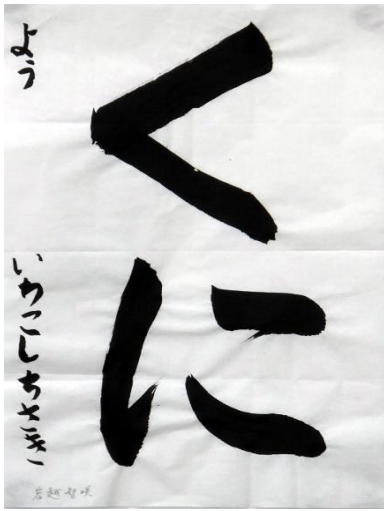 くに
よう
いわこしちさき
岩越智咲